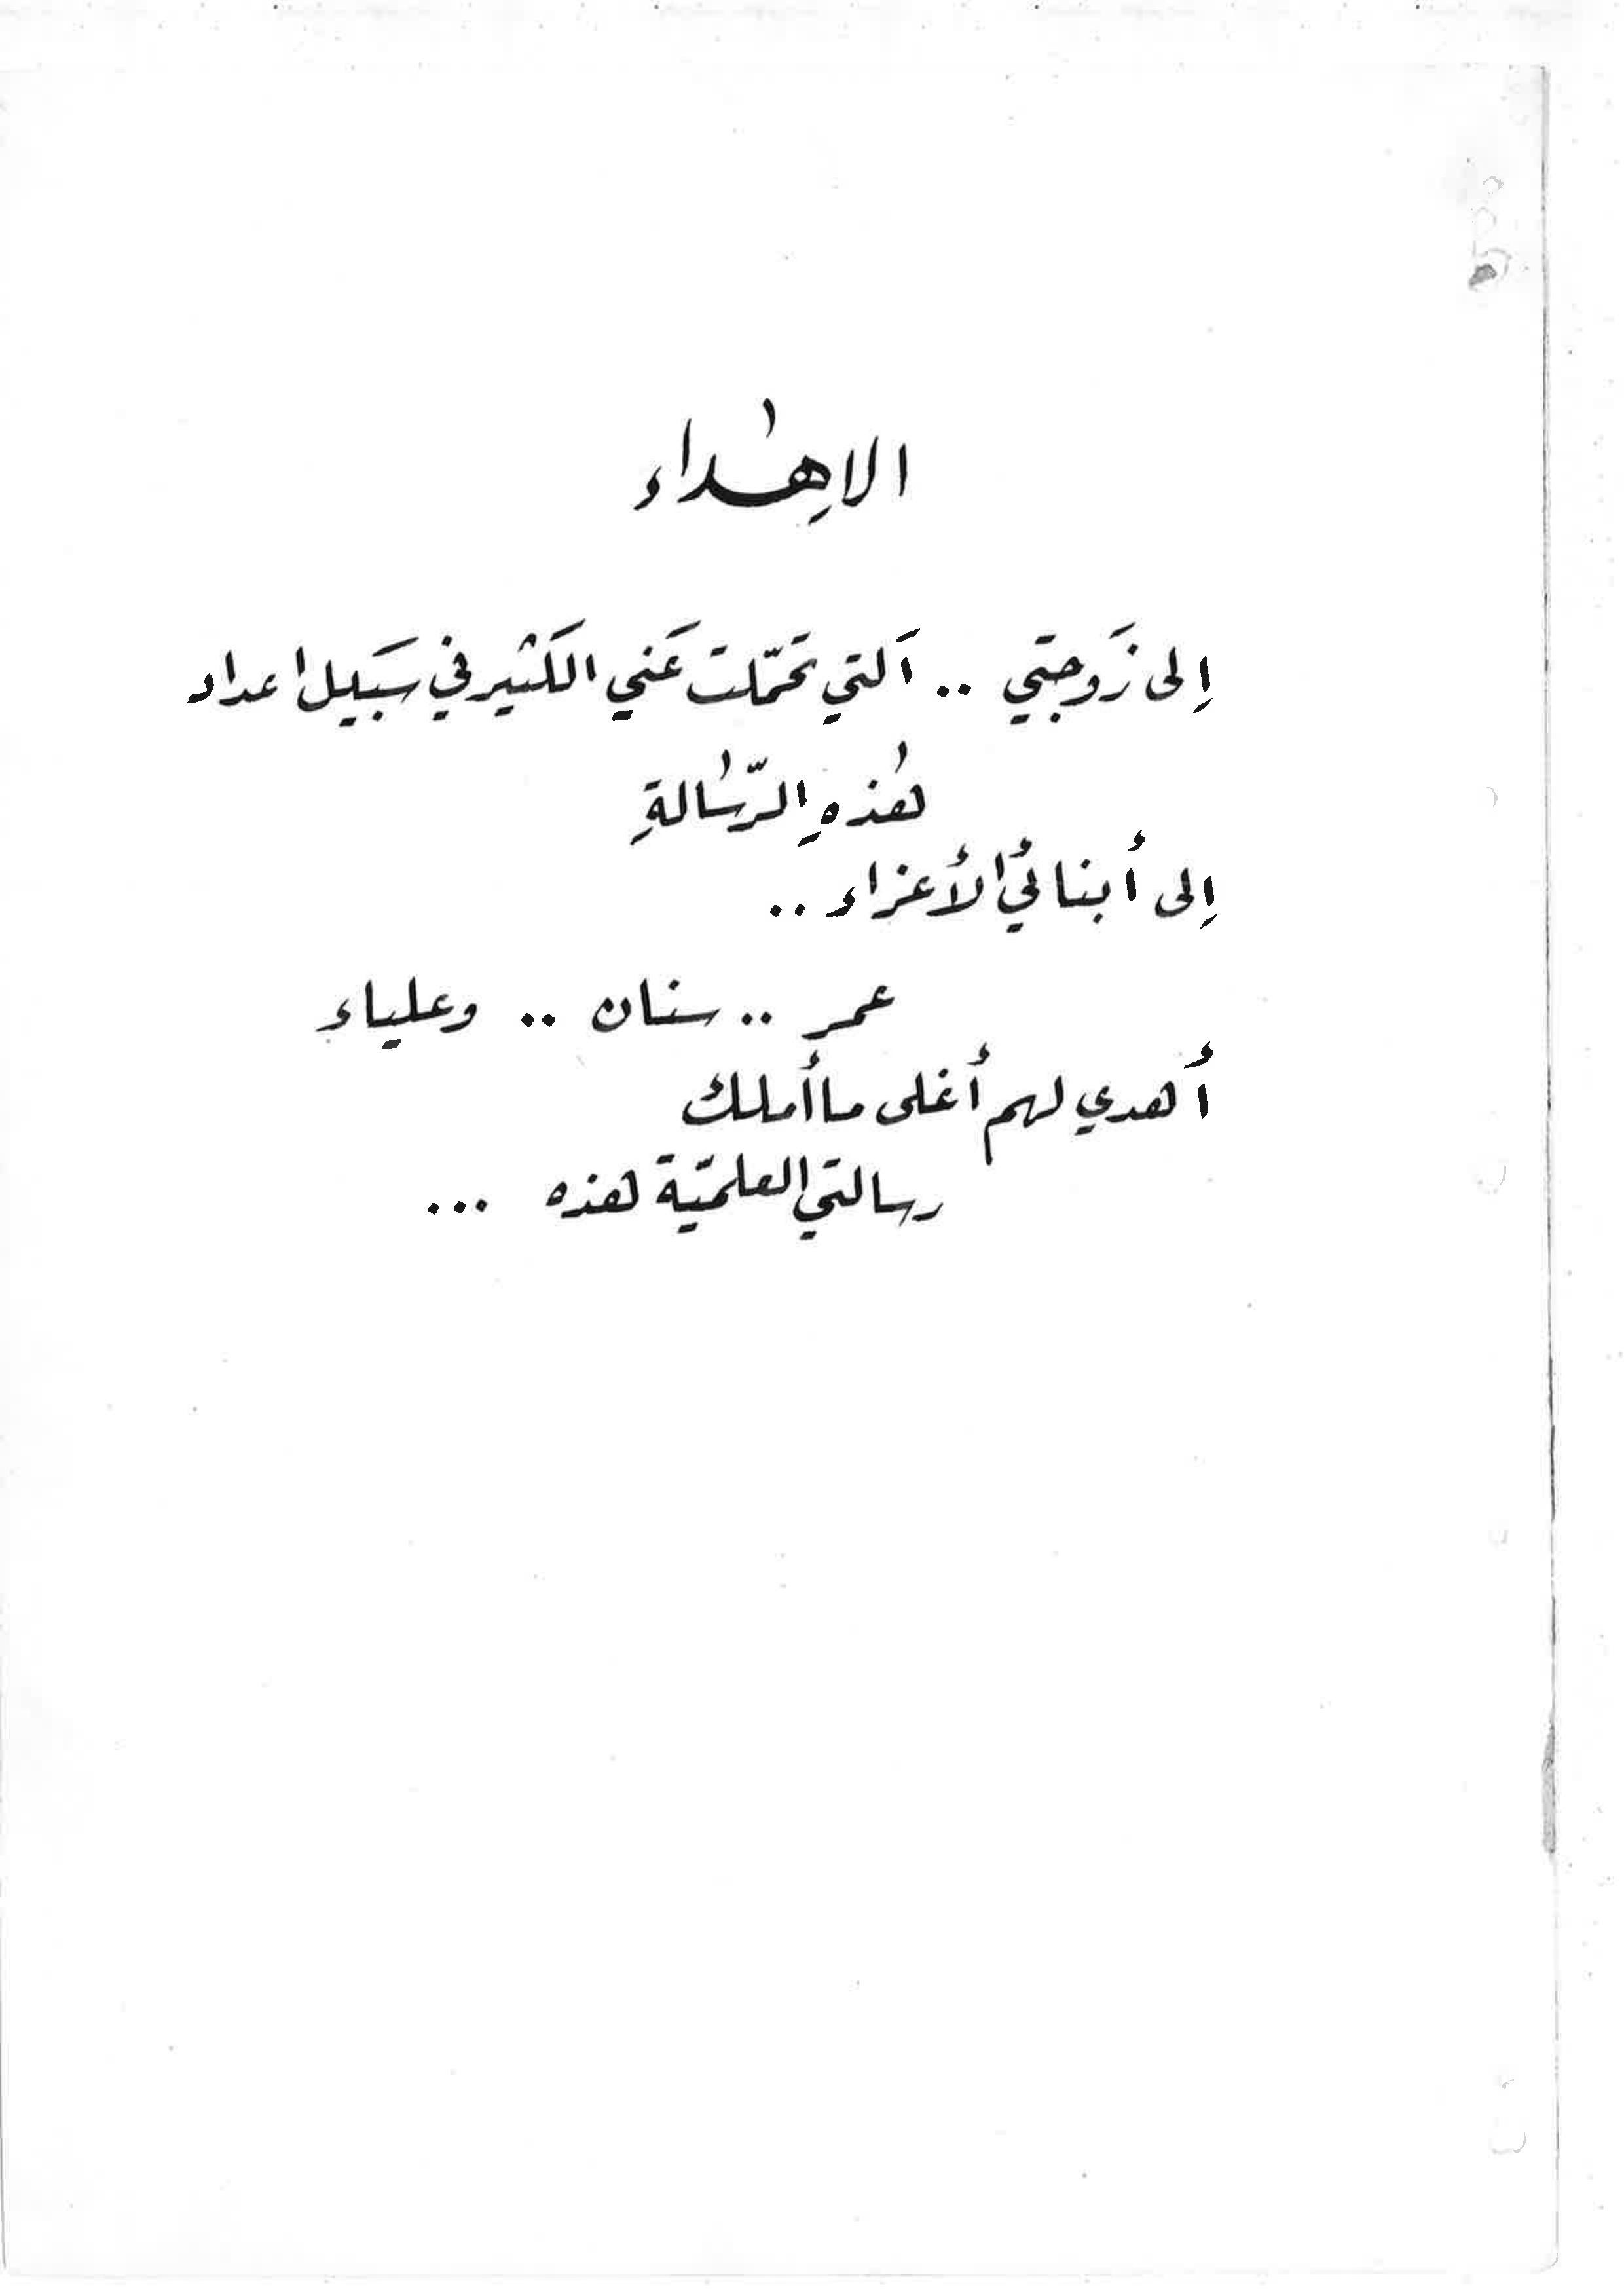 الاهداء
إلى زَوجتي .. اَلتي تحمّلت عَني الكَثير في سَبيل اعداد
هٰذهِ الرّسٰالةِ
إلى أبنائي الأعزاء ..
عمر .. سنان .. وعلياء
أهدي لهم أغلى ما أملك
رسالتي العلميّة هذه ...